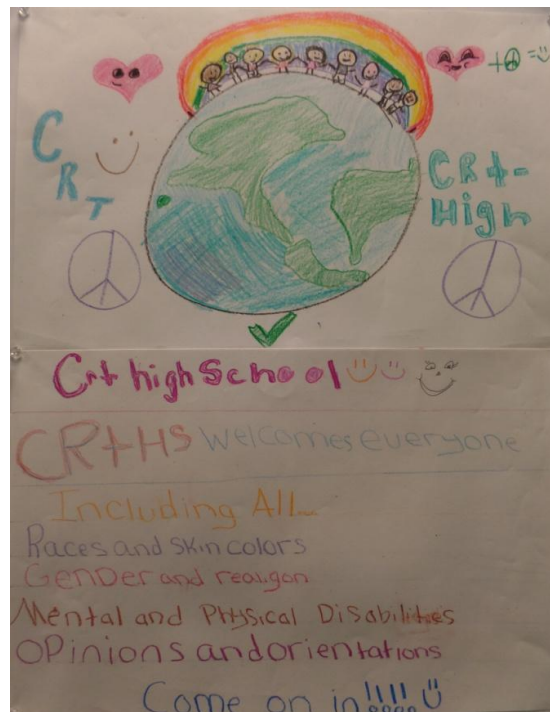 CRT
CRt-
High
Crt high School
CRtHS Welcomes everyone
Including All...
Races and skin colors
Gender and realigon
Mental and Physical Disabilities
Opinions and orientations
Come on in!!!!